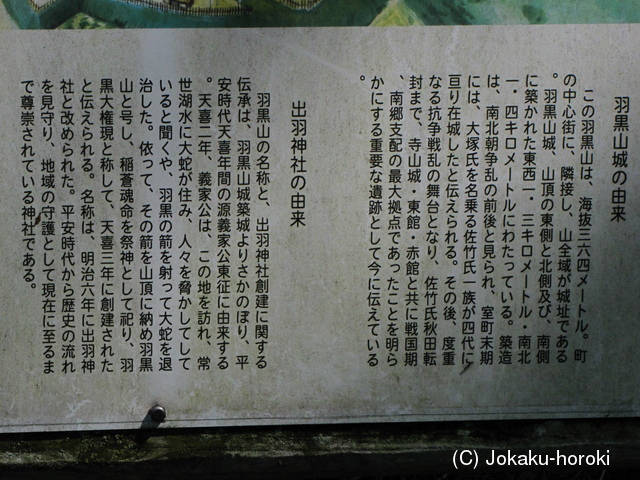 羽黒山城の由来
この羽黒山は、海抜三六四メートル。町
の中心街に、隣接し、山全域が城址である
。羽黒山城、山頂の東側と北側及び、南側
に築かれた東西一・三キロメートル・南北
一・四キロメートルにわたっている。築造
は、南北朝争乱の前後と見られ、室町末期
には、大塚氏を名乗る佐竹氏一族が四代に
亘り在城したと伝えられる。その後、度重
なる抗争戦乱の舞台となり、佐竹氏秋田転
封まで、寺山城・東館・赤館と共に戦国期
、南郷支配の最大拠点であったことを明ら
かにする重要な遺跡として今に伝えている
。
出羽神社の由来
羽黒山の名称と、出羽神社創建に関する
伝承は、羽黒山城築城よりさかのぼり、平
安時代天喜年間の源義家公東征に由来する
。天喜二年、義家公は、この地を訪れ、常
世湖水に大蛇が住み、人々を脅かしてして
いると聞くや、羽黒の箭を射って大蛇を退
治した。依って、その箭を山頂に納め羽黒
山と号し、稲蒼魂命を祭神として祀り、羽
黒大権現と称して、天喜三年に創建された
と伝えられる。名称は、明治六年に出羽神
社と改められた。平安時代から歴史の流れ
を見守り、地域の守護として現在に至るま
で尊崇されている神社である。
(C) Jokaku-horoki